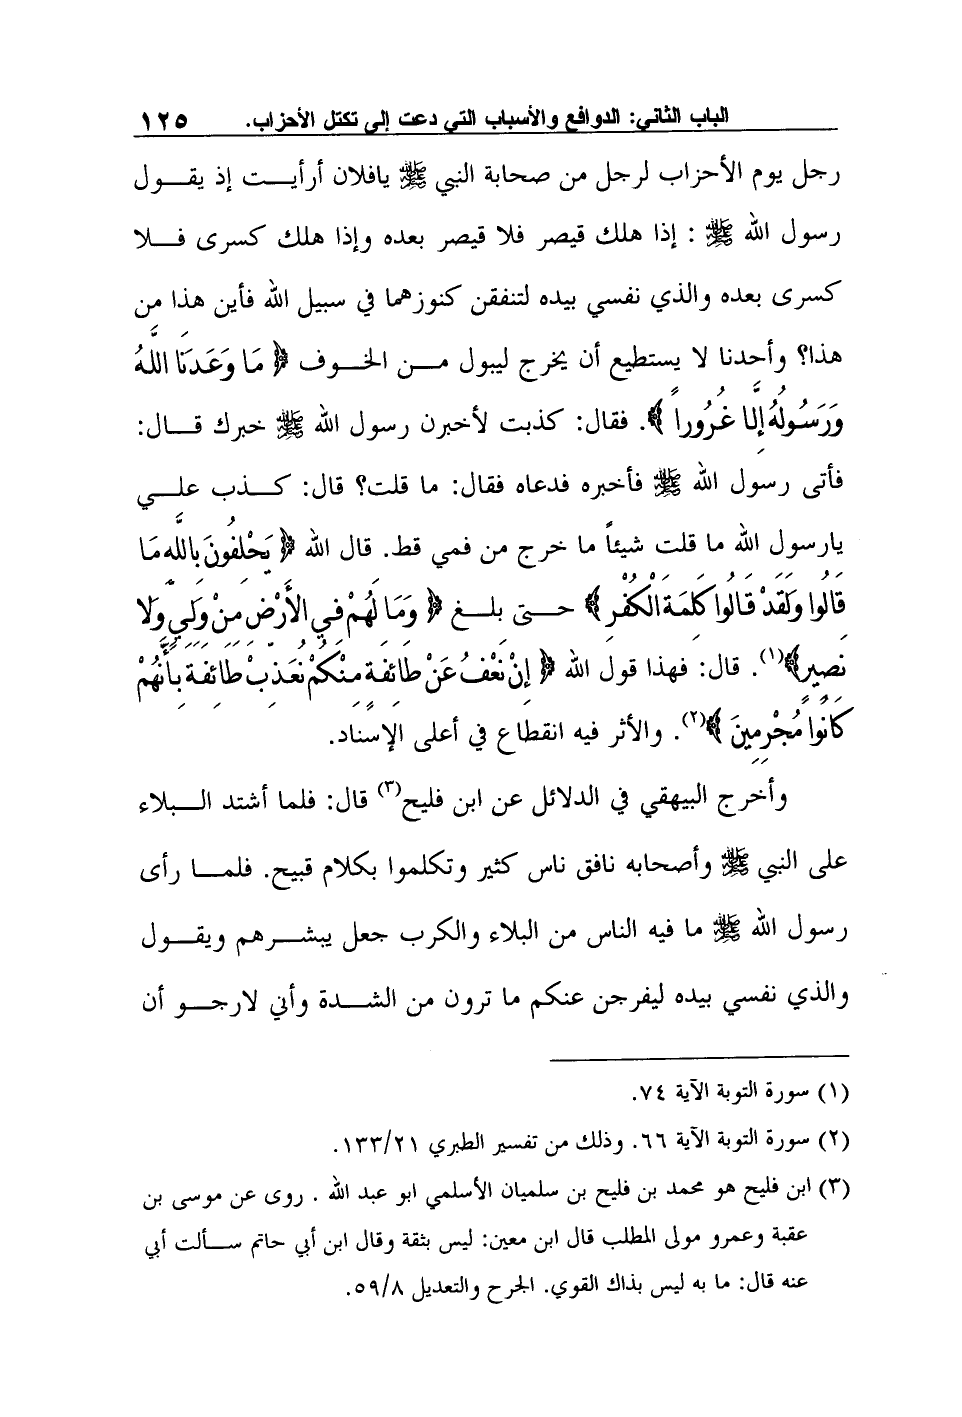 الباب الثاني: الدوافع والأسباب التي دعت إلى تكتل الأحزاب. ١٢٥
رجل يوم الأحزاب لرجل من صحابة النبي ﷺ يافلان أرأيت إذ يقول
رسول الله ﷺ : إذا هلك قيصر فلا قيصر بعده وإذا هلك كسرى فلا
كسرى بعده والذي نفسي بيده لتنفقن كنوزهما في سبيل الله فأين هذا من
هذا؟ وأحدنا لا يستطيع أن يخرج ليبول من الخوف ﴿ مَا وَعَدَنَا اللَّهُ
وَرَسُولُهُ إِلَّا غُرُوراً ﴾. فقال: كذبت لأخبرن رسول الله ﷺ خبرك قال:
فأتى رسول الله ﷺ فأخبره فدعاه فقال: ما قلت؟ قال: كذب علي
يارسول الله ما قلت شيئاً ما خرج من فمي قط. قال الله ﴿ يَحْلِفُونَ بِاللَّهِ مَا
قَالُوا وَلَقَدْ قَالُوا كَلِمَةَ الْكُفْرِ ﴾ حتى بلغ ﴿ وَمَا لَهُمْ فِي الأَرْضِ مِنْ وَلِيٍّ وَلَا
نَصِيرٍ ﴾(١). قال: فهذا قول الله ﴿ إِنْ نَعْفُ عَنْ طَائِفَةٍ مِنْكُمْ نُعَذِّبْ طَائِفَةً بِأَنَّهُمْ
كَانُوا مُجْرِمِينَ ﴾(٢). والأثر فيه انقطاع في أعلى الإسناد.
وأخرج البيهقي في الدلائل عن ابن فليح(٣) قال: فلما أشتد البلاء
على النبي ﷺ وأصحابه نافق ناس كثير وتكلموا بكلام قبيح. فلما رأى
رسول الله ﷺ ما فيه الناس من البلاء والكرب جعل يبشرهم ويقول
والذي نفسي بيده ليفرجن عنكم ما ترون من الشدة وأني لارجو أن
(١) سورة التوبة الآية ٧٤.
(٢) سورة التوبة الآية ٦٦. وذلك من تفسير الطبري ١٣٣/٢١.
(٣) ابن فليح هو محمد بن فليح بن سلميان الأسلمي ابو عبد الله . روى عن موسى بن
عقبة وعمرو مولى المطلب قال ابن معين: ليس بثقة وقال ابن أبي حاتم سألت أبي
عنه قال: ما به ليس بذاك القوي. الجرح والتعديل ٥٩/٨.